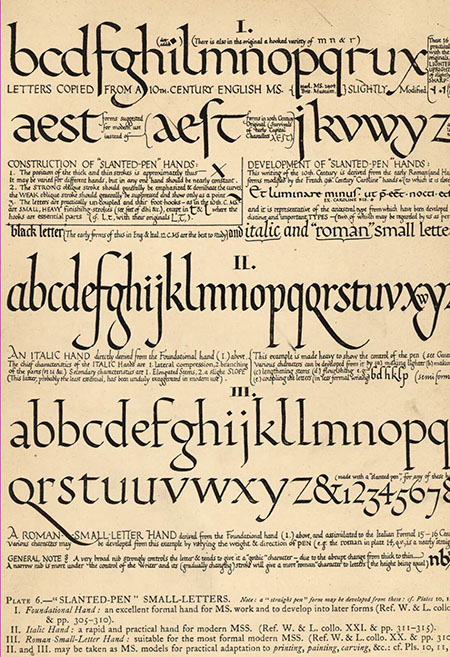 I.
(There is also in the original a hooked variety of m n & r)
bcdfghilmnopqrux
LETTERS COPIED FROM A 10TH. CENTURY ENGLISH MS. SLIGHTLY Modified.
aest forms suggested for modern use instead of aest forms in 10th Century Original (survivals of early Capital Characters jkvwyz
CONSTRUCTION OF "SLANTED-PEN" HANDS:
1. The position of the thick and thin strokes is approximately thus
It may be varied for different hands, but in any one hand should be nearly constant.
2. The STRONG oblique stroke should gratefully be emphasized & dominate the curves
the WEAK oblique stroke should generally be suppressed and show only as a point
3. The letters are practically un-coupled and their foot-hooks - as in the 10th. C. MS.
are SMALL, HEAVY finishing-strokes (see feet of dhi &c.), except in t & l where the
hooks are essential parts (cf. I, t, with their originals I, T.)
DEVELOPMENT OF "SLANTED-PEN" HANDS:
This writing of the 10th Century is derived from the early Roman and Ha
forms modified by the French 9th Century "Caroline" hands & to which it is
Et luminare minus. ut p
and it is representative of the ancestral type from which have been developed
writing and important TYPES - (two of which may be reported by us as per
"black letter" (The early forms of this in Eng & Ital. 12 C. MS are the best to study) and italic and "roman" small lette
II.
abcdefghijklmnopqrstuvxwyz
AN ITALIC HAND directly derived from the Foundational hand (1) above.
The chief characteristics of the ITALIC HANDS are 1. lateral compression, 2 branching
of the stems (in n &c.) Secondary characteristics are 1. Elongated Stems, 2. a slight Slope
(This latter, probably the least essential, has been unduly exaggerated in modern use).
This example is made heavy to show the control of the pen (see Gener
Various characters can be developed from it by (a) making lighter (b) making
(c) lengthening stems (d) flourishing e.g.
(e) coupling the letters (in less formal writing) bdhklp (semi form
III.
abbcdefghijkllmnopq
(made with a "slanted-pen" for any of these ha
qrstuuvwxyz&12345678
A ROMAN-SMALL-LETTER HAND derived from the Foundational hand (1.) above, and assimilated to the Italian Formal 15-16 Cent
Various characters may be developed from this example by varying the weight & direction of PEN (e.g. the roman in plate is a nearly straig
GENERAL NOTE: A very broad nib strongly controls the letter & tends to give it a "gothic" character - due to the abrupt change from thick to thin
A narrow nib is more under "the control of the Writer" and its (gradually changing) stroke will give a more "roman character" to letters (the height being equal) nb
PLATE 6.—"SLANTED-PEN" SMALL-LETTERS. Note: a "straight pen" form may be developed from these: cf. Plates 10, 1
I. Foundational Hand: an excellent formal hand for MS. work and to develop into later forms (Ref. W. & L. collo
& pp. 305-310).
II. Italic Hand: a rapid and practical hand for modern MSS. (Ref. W. & L. collo. XXI. & pp. 311-315).
III. Roman Small-Letter Hand: suitable for the most formal modern MSS. (Ref. W. & L. collo. XX. & pp. 310
II. and III. may be taken as MS. models for practical adaptation to printing, painting, carving, &c.: cf. Pls. 10, 11,